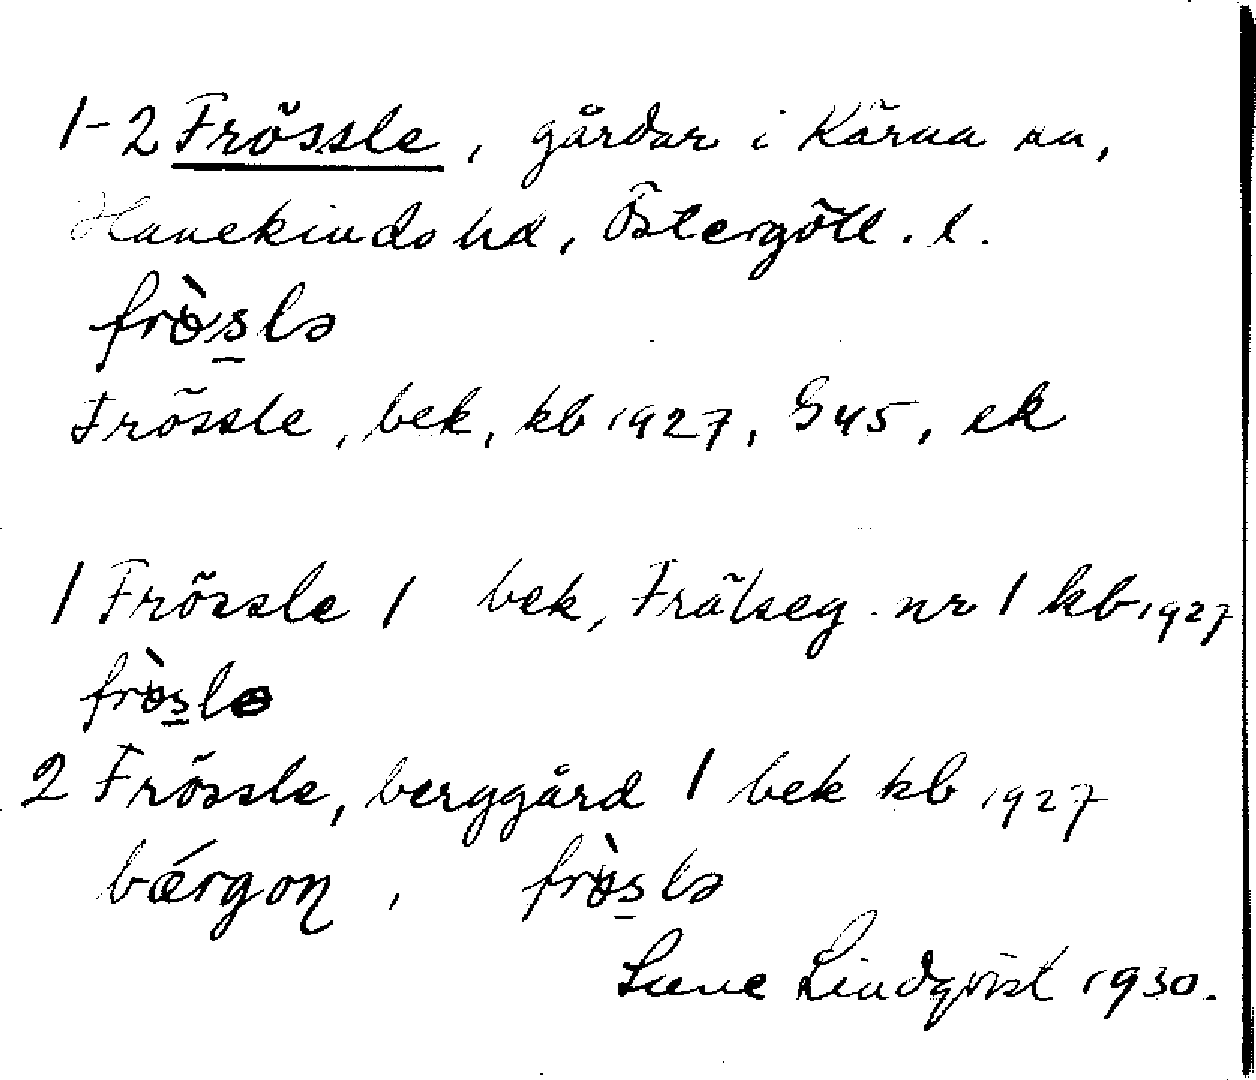 1-2 Frössle, gårdar i Kärna sn,
Hanekinds hd, Östergötl. l.
frö̀s̲lə
Frössle, bek, kb 1927, G45, ek
1 Frössle 1 bek, Frälseg. nr 1 kb 1927
frö̀s̲lə
2 Frössle, berggård 1 bek kb 1927
bǽrgoɳ, frö̀s̲lə
Sune Lindqvist 1930.